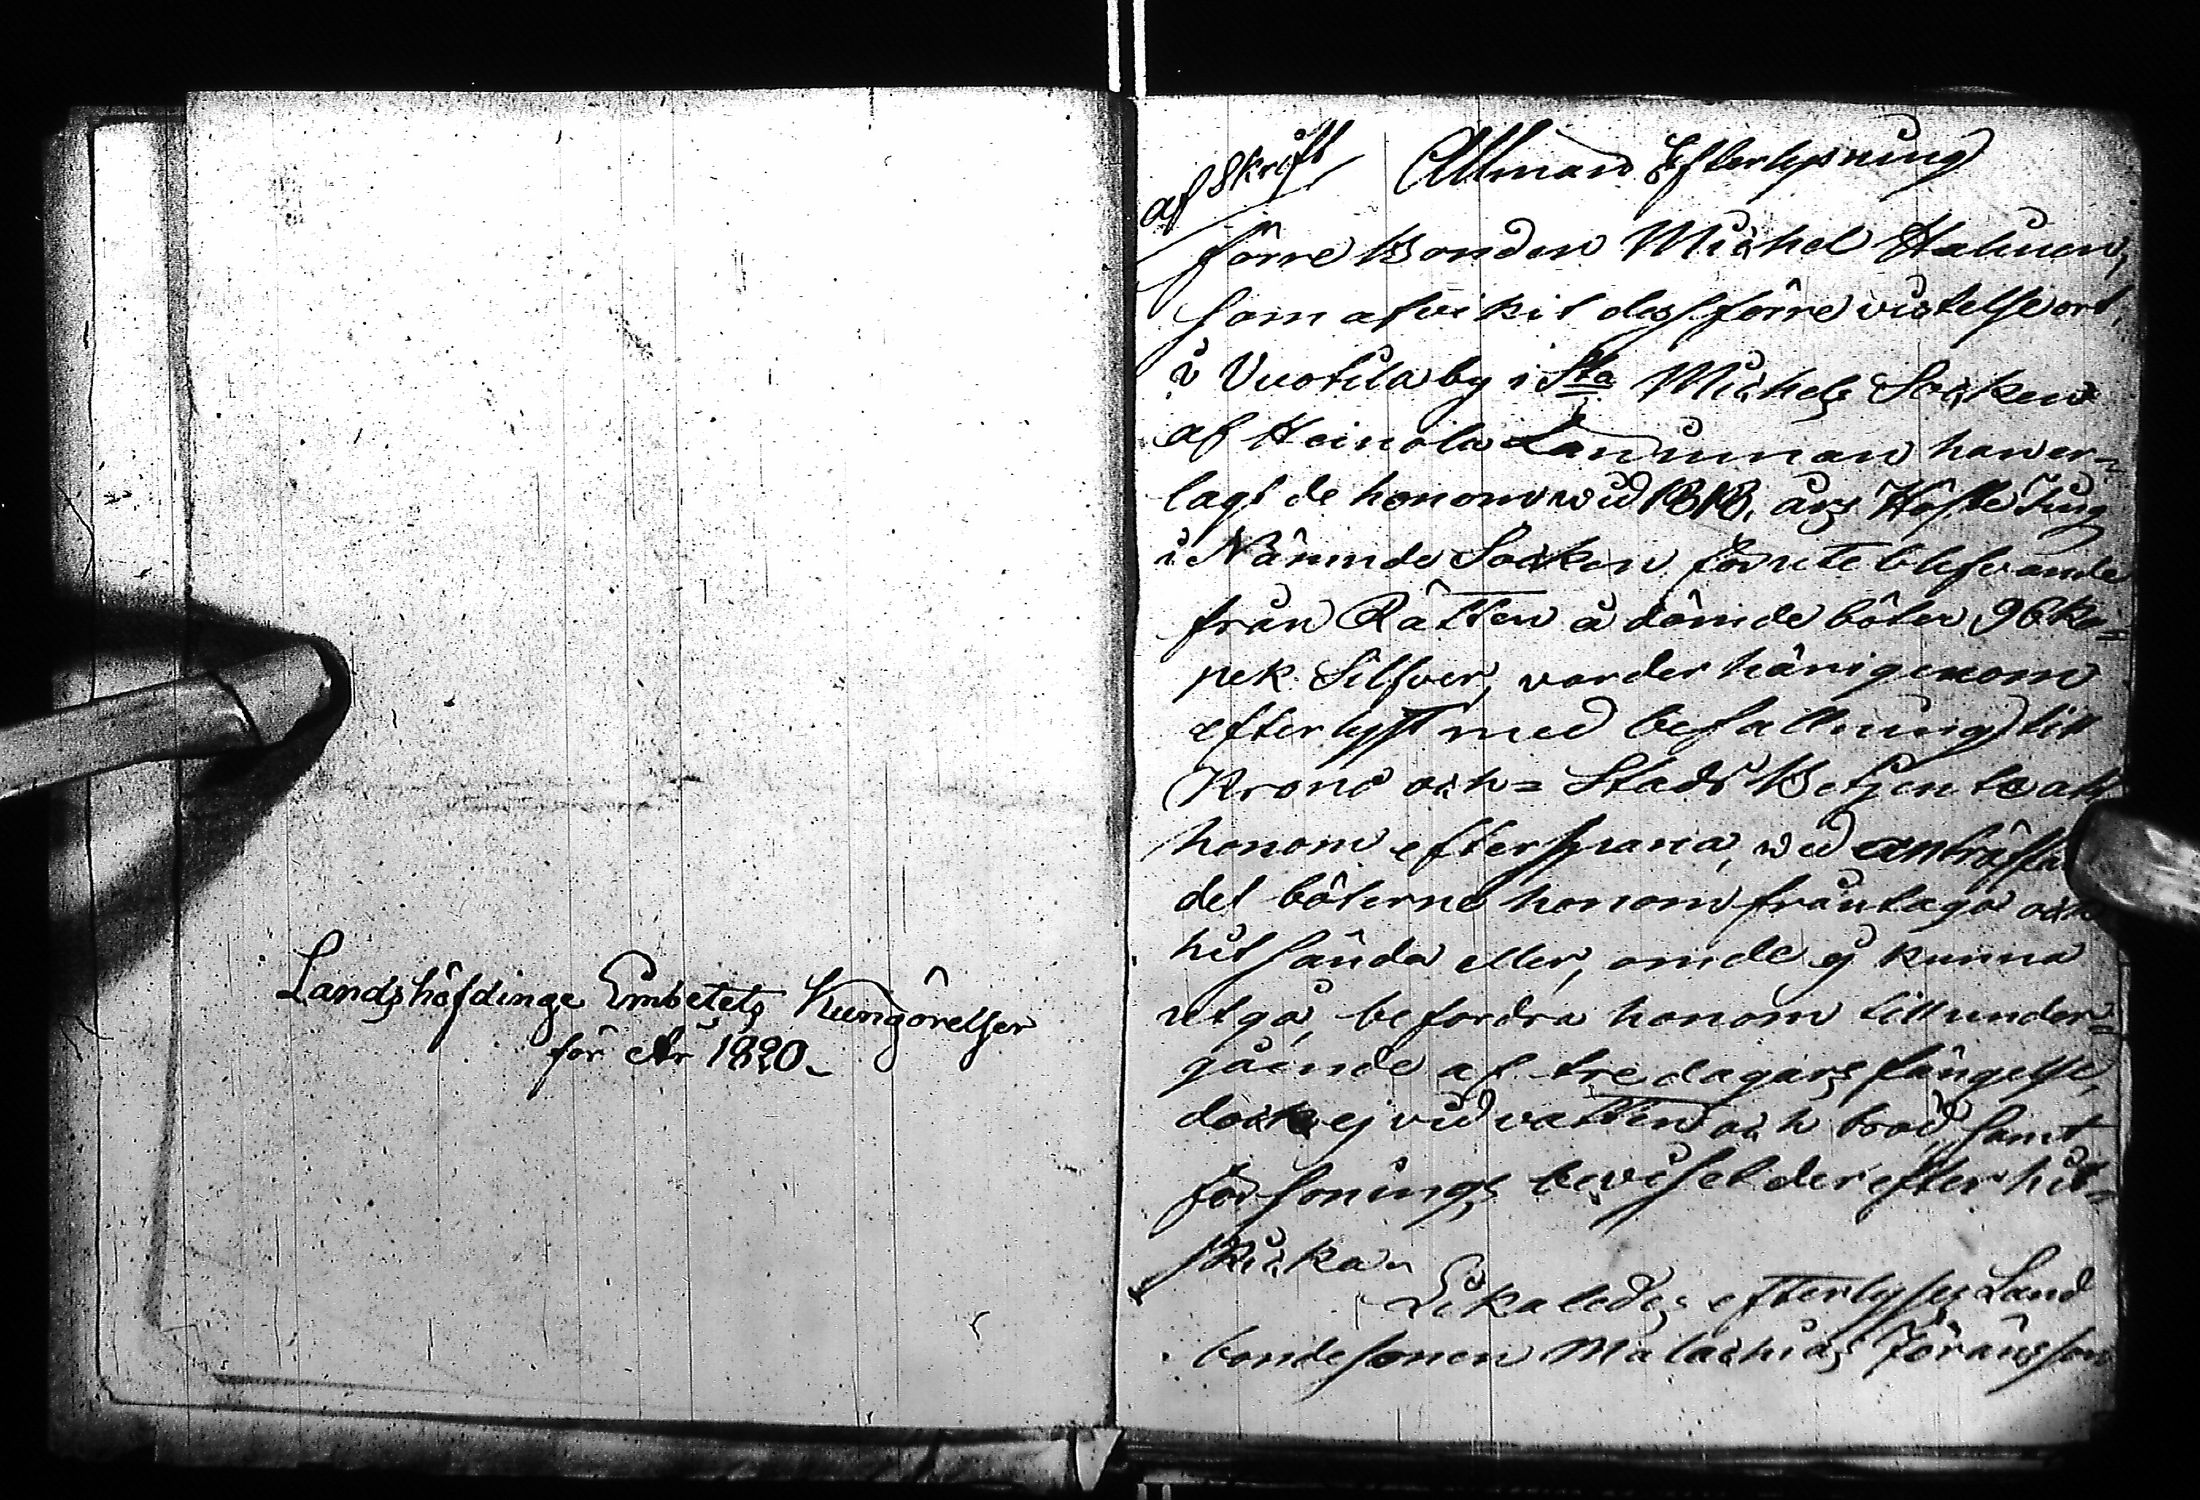 Landshöfdinge Embetets Kungörelser
för År 1820.
afskrift
Allmän Efterlysning
förre Bonden Michel Halinen,
som afvikit dess förre vistelse ort,
i Vuotila by i Sta Michels Socken
af Heinola Län, innan han er-
lagt de honom wid 1818, års Höste Ting
i Nämnde Socken för uteblifvande
från Rätten ådömde böter 96 ko-
pek Silfver, varder härigenom
efterlyst med befallning till
Krono och Stads Betjente att
honom efterspana, wid anträffan
det böterne honom fråntaga och
hitsända eller, om de ej kunna
utgå, befordra honom till under-
gående af tre dagars fängelse,
dock ej vid vatten och bröd, samt
försonings beviset derefter hit-
skicka.
Likaledes efterlyses Land
bondesonen Malachias Göransson